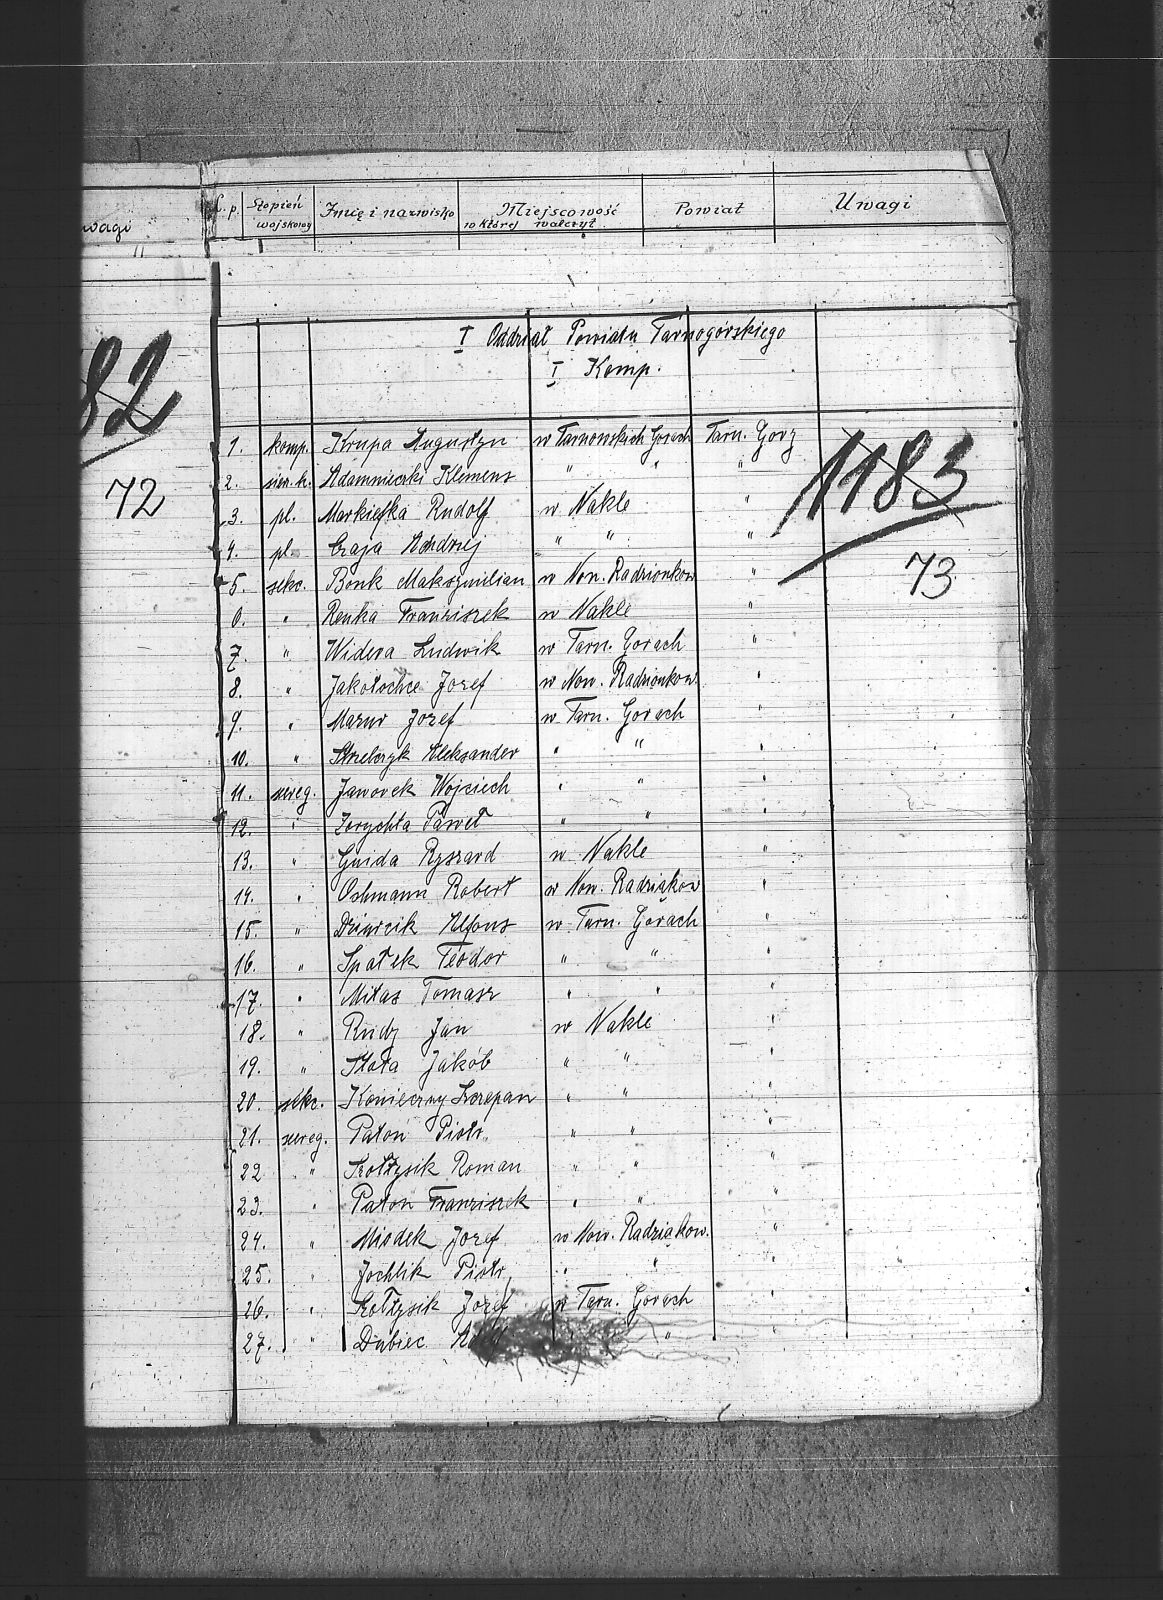 wagi
"
82
72
L. p. Stopień wojskowy Imię i nazwisko Miejscowość w której walczył Powiat Uwagi
I Oddział Powiatu Tarnogórskiego
I Komp.
1. komp. Krupa Augustyn w Tarnowskich Gorach Tarn. Gory
1183
2. sier. h. Adamnieczki Klemens " " "
3. pl. Markiefka Rudolf w Nakle "
4. pl. Czaja Andrzej " " "
73
5. sekc. Bonk Maksymilian w Now. Radzionkow "
6. " Renka Franziszek w Nakle "
7. " Widera Ludwik w Tarn. Gorach "
8. " Jakotochce Jozef w Now. Radzionkow "
9. " Mazur Jozef w Tarn. Gorach "
10. " Aleksander " " "
11. szereg. Jaworek Wojciech " " "
12. " Zorychta Paweł " " "
13. " Guida Ryszard w Nakle "
14. " Oshmann Robert w Now. Radziąkow "
15. " Alfons w Tarn. Gorach "
16. " Spałek Teodor " " "
17. " Mitas Tomasz " " "
18. " Rudy Jan w Nakle "
19. " Słota Jakób " " "
20. sekc. Konieczny Szczepan " " "
21. szereg. Patoń Piotr " " "
22 " Szołtysik Roman " " "
23. " Paton Franziszek " " " "
24. " Miodek Jozef w Now. Radziąkow. "
25. " Jochlik Piotr " " "
26. " Szołtysik Jozef w Tarn. Gorach "
27. " Dubiec " "